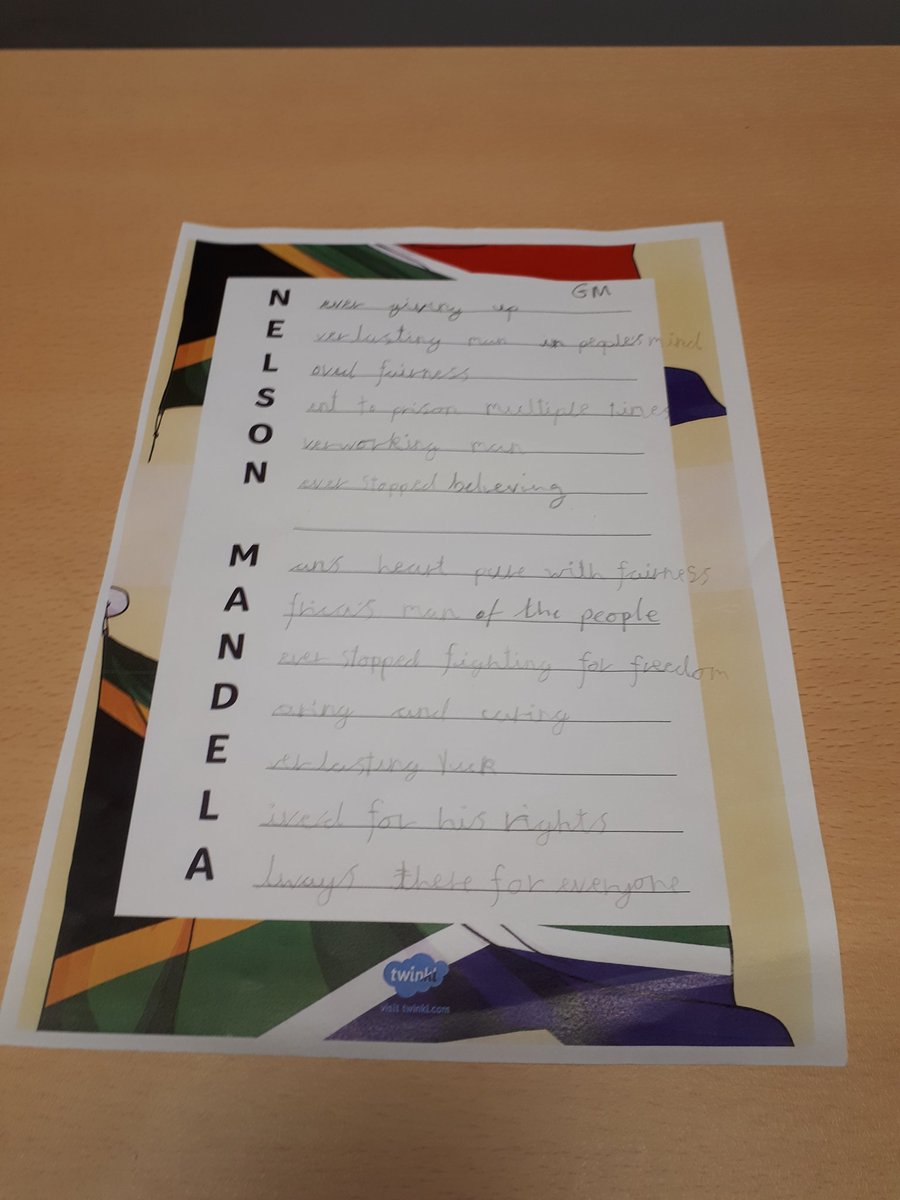 GM
N ever giving up
E verlasting man in people's mind
L oved fairness
S ent to prison multiple times
O verworking man
N ever stopped believing
M ans heart pure with fairness
A frica's man of the people
N ever stopped fighting for freedom
D aring and caring
E verlasting luck
L ived for his rights
A lways there for everyone
twinkl
visit twinkl.com